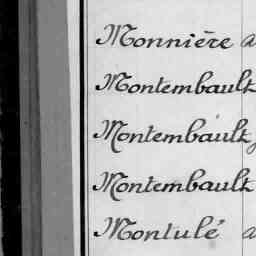 Monnière
Montembault
Montembault
Montembault
Montulé